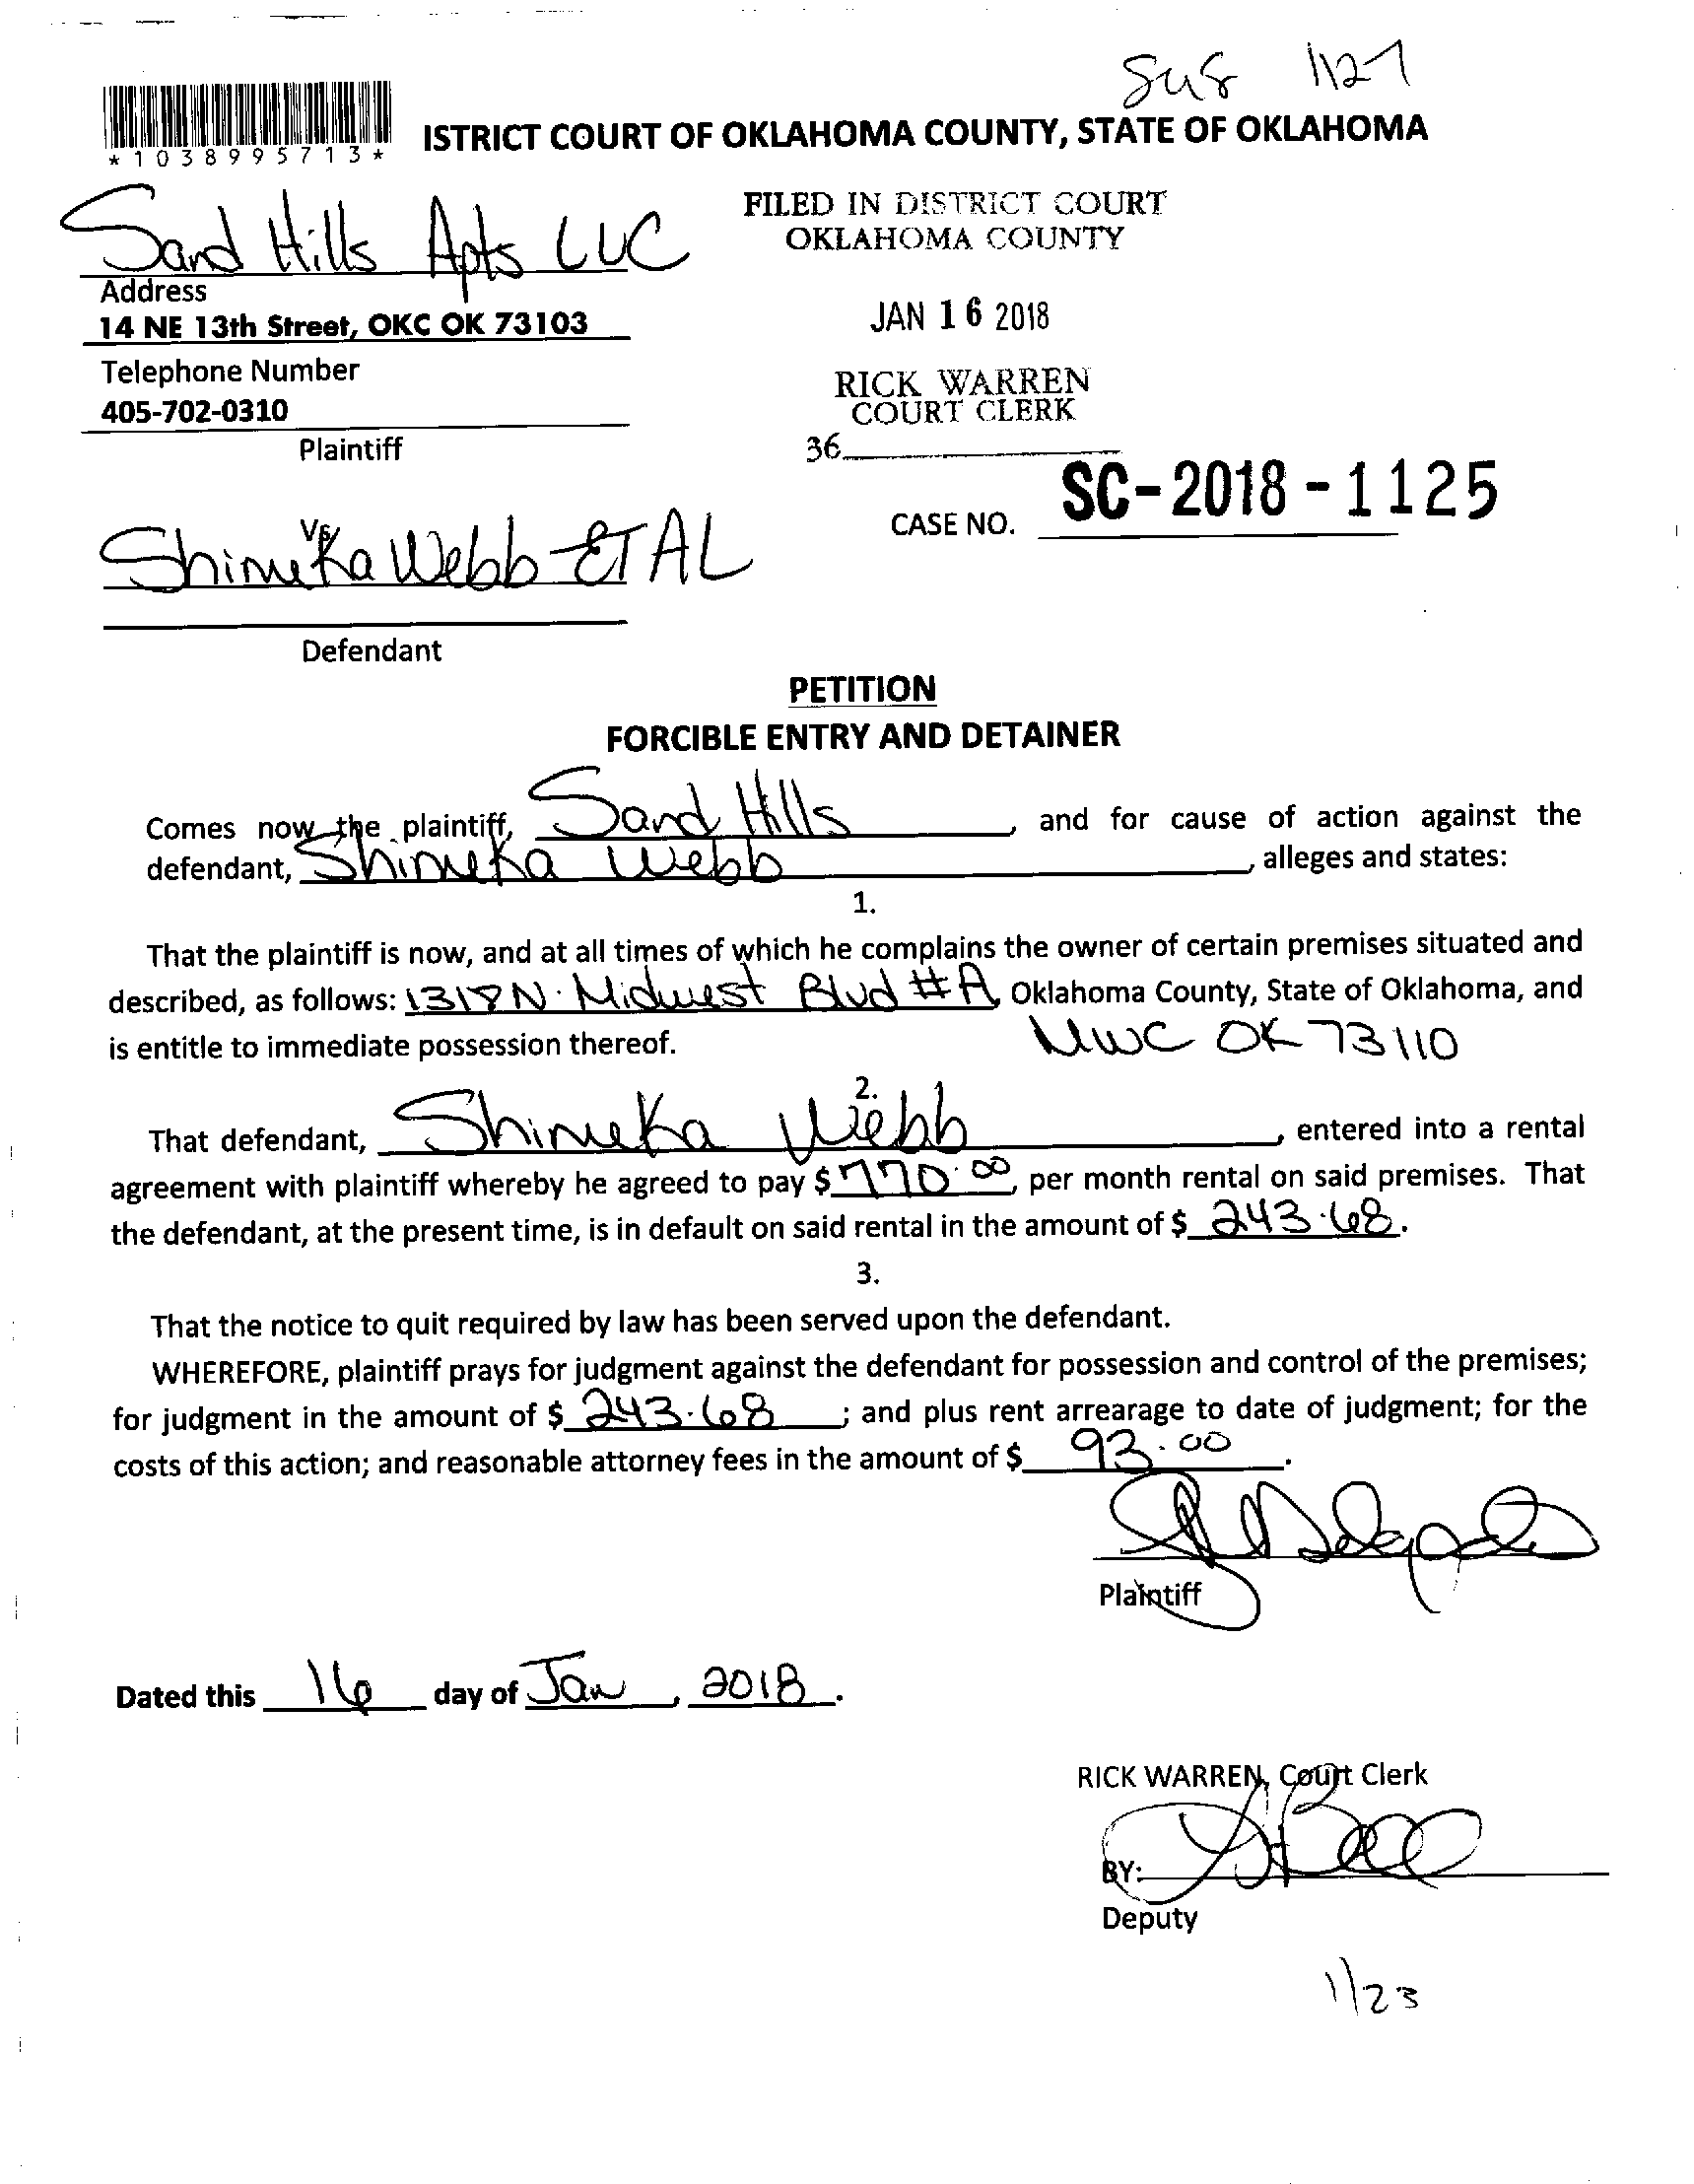 1127
*1038995713*
ISTRICT COURT OF OKLAHOMA COUNTY, STATE OF OKLAHOMA
Sand Hills Apts LLC
FILED IN DISTRICT COURT
OKLAHOMA COUNTY
Address
14 NE 13th Street, OKC OK 73103
JAN 16 2018
Telephone Number
405-702-0310
RICK WARREN
COURT CLERK
Plaintiff
36
SC-2018-1125
CASE NO.
Vs.
Shimeka Webb ET AL
Defendant
PETITION
FORCIBLE ENTRY AND DETAINER
Comes now the plaintiff, Sand Hills, and for cause of action against the
defendant, Shimeka Webb, alleges and states:
1.
That the plaintiff is now, and at all times of which he complains the owner of certain premises situated and
described, as follows: 1318 N. Midwest Blvd #A Oklahoma County, State of Oklahoma, and
is entitle to immediate possession thereof. MWC OK 73110
2.
That defendant, Shimeka Webb, entered into a rental
agreement with plaintiff whereby he agreed to pay $770.00, per month rental on said premises. That
the defendant, at the present time, is in default on said rental in the amount of $ 243.68.
3.
That the notice to quit required by law has been served upon the defendant.
WHEREFORE, plaintiff prays for judgment against the defendant for possession and control of the premises;
for judgment in the amount of $ 243.68; and plus rent arrearage to date of judgment; for the
costs of this action; and reasonable attorney fees in the amount of $ 93.00.
Plaintiff
Dated this 16 day of Jan, 2018.
RICK WARREN, Court Clerk
BY:
Deputy
1/23